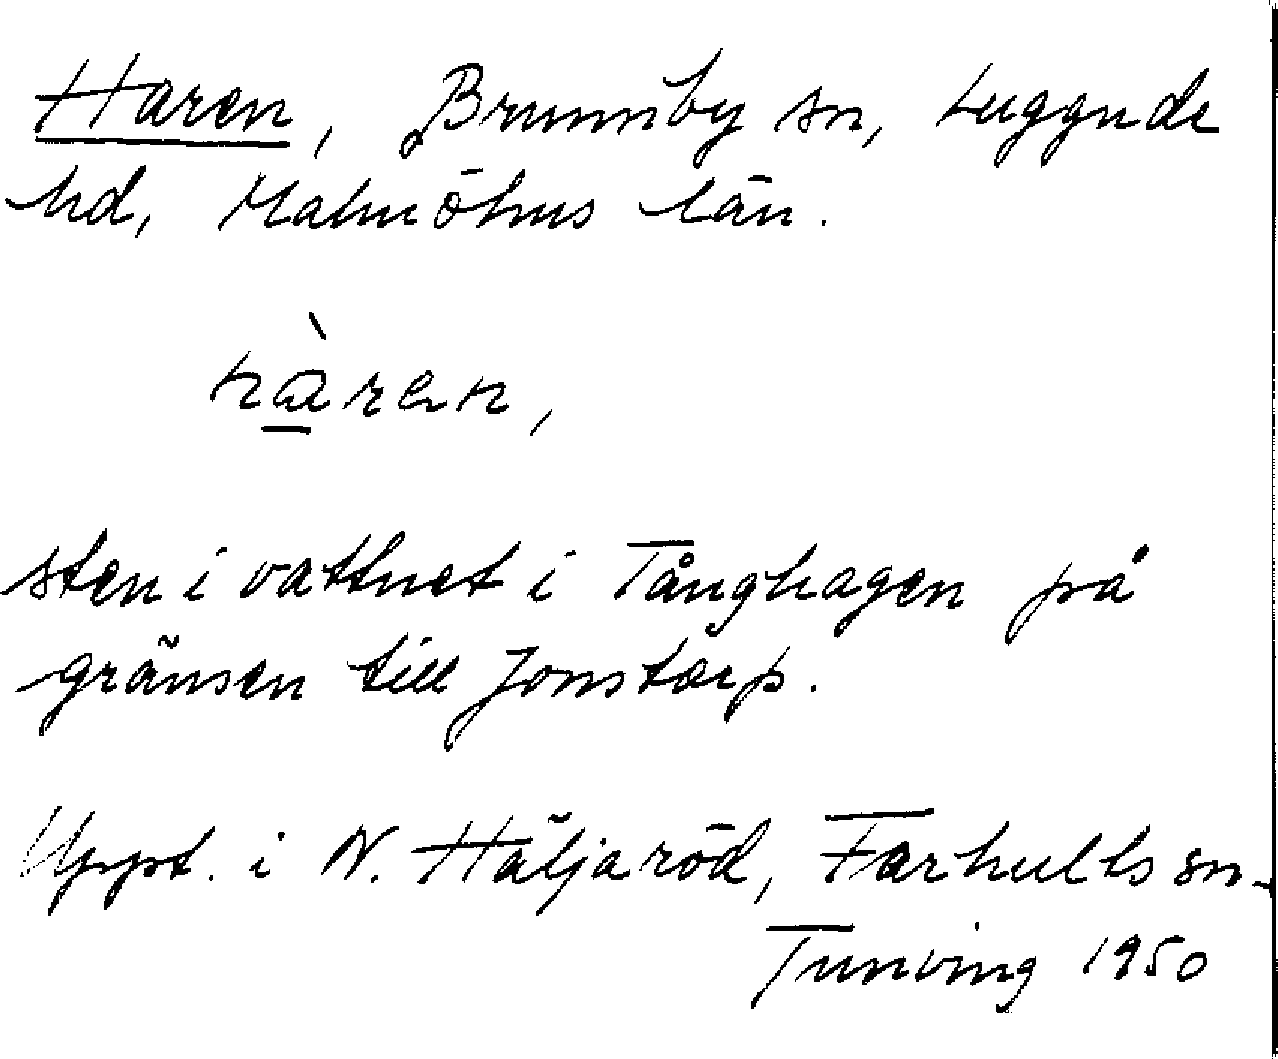 Haren, Brunnby sn, Luggude
hd, Malmöhus län.
hà̱ren,
sten i vattnet i Tånghagen på
gränsen till Jonstorp.
Uppt. i N. Häljaröd, Farhults sn.
Tunving 1950